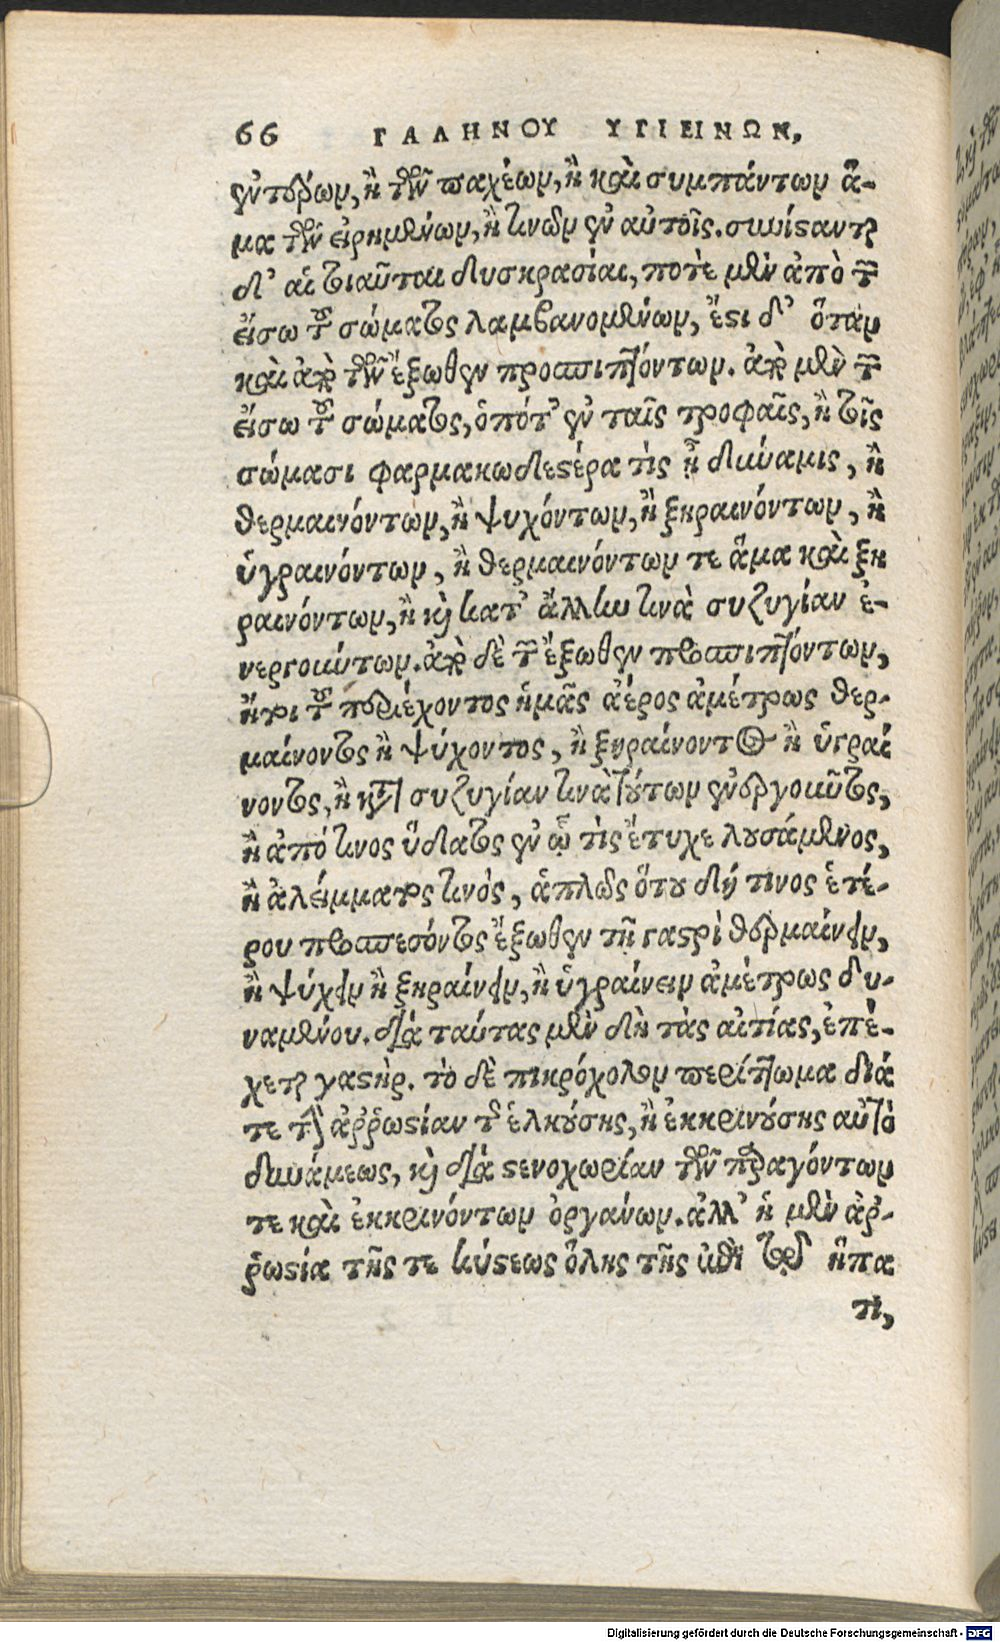 66 ΓΑΛΗΝΟΥ ΥΓΙΕΙΝΩΝ,
ἐντέρων, ἢ τῶν παχέων, ἢ καὶ συμπάντων ἅ-
μα τῶν εἰρημένων, ἢ τινῶν ἐν αὐτοῖς. συνίσανται
δ᾽ αἱ τοιαῦται δυσκρασίαι, ποτὲ μὲν ἀπὸ τῶν
εἴσω τοῦ σώματος λαμβανομένων, ἔστι δ᾽ ὅταν
καὶ ἀπὸ τῶν ἔξωθεν προσπιπτόντων. ἀπὸ μὲν τῶν
εἴσω τοῦ σώματος, ὁπότ᾽ ἐν ταῖς τροφαῖς, ἢ τοῖς
σώμασι φαρμακωδεστέρα τὶς ᾖ δύναμις, ἢ
θερμαινόντων, ἢ ψυχόντων, ἢ ξηραινόντων, ἢ
ὑγραινόντων, ἢ θερμαινόντων τε ἅμα καὶ ξη
ραινόντων, ἢ καὶ κατ᾽ ἄλλην τινὰ συζυγίαν ἐ-
νεργούντων. ἀπὸ δὲ τῶν ἔξωθεν προσπιπτόντων,
ἤτοι τοῦ περιέχοντος ἡμᾶς ἀέρος ἀμέτρως θερ-
μαίνοντος ἢ ψύχοντος, ἢ ξηραίνοντος ἢ ὑγραί
νοντος, ἢ κατὰ συζυγίαν τινὰ τούτων ἐνεργοῦντος,
ἢ ἀπό τινος ὕδατος ἐν ᾧ τὶς ἔτυχε λουσάμενος,
ἢ ἀλείμματος τινὸς, ἁπλῶς ὅτου δή τινος ἑτέ-
ρου προσπεσόντος ἔξωθεν τῇ γαστρὶ θερμαίνειν,
ἢ ψύχειν ἢ ξηραίνειν, ἢ ὑγραίνειν ἀμέτρως δυ-
ναμένου. διὰ ταύτας μὲν δὴ τὰς αἰτίας, ἐπέ-
χεται γαστὴρ. τὸ δὲ πικρόχολον περίττωμα διά
τε τὴν ἀῤῥωστίαν τῆς ἑλκούσης, ἢ ἐκκρινούσης αὐτὸ
δυνάμεως, καὶ διὰ στενοχωρίαν τῶν παραγόντων
τε καὶ ἐκκρινόντων ὀργάνων. ἀλλ᾽ ἡ μὲν ἀῤ-
ῥωστία τῆς τε κύστεως ὅλης τῆς ἐπὶ τῷ ἥπα
τι,
Digitalisierung gefördert durch die Deutsche Forschungsgemeinschaft - DFG